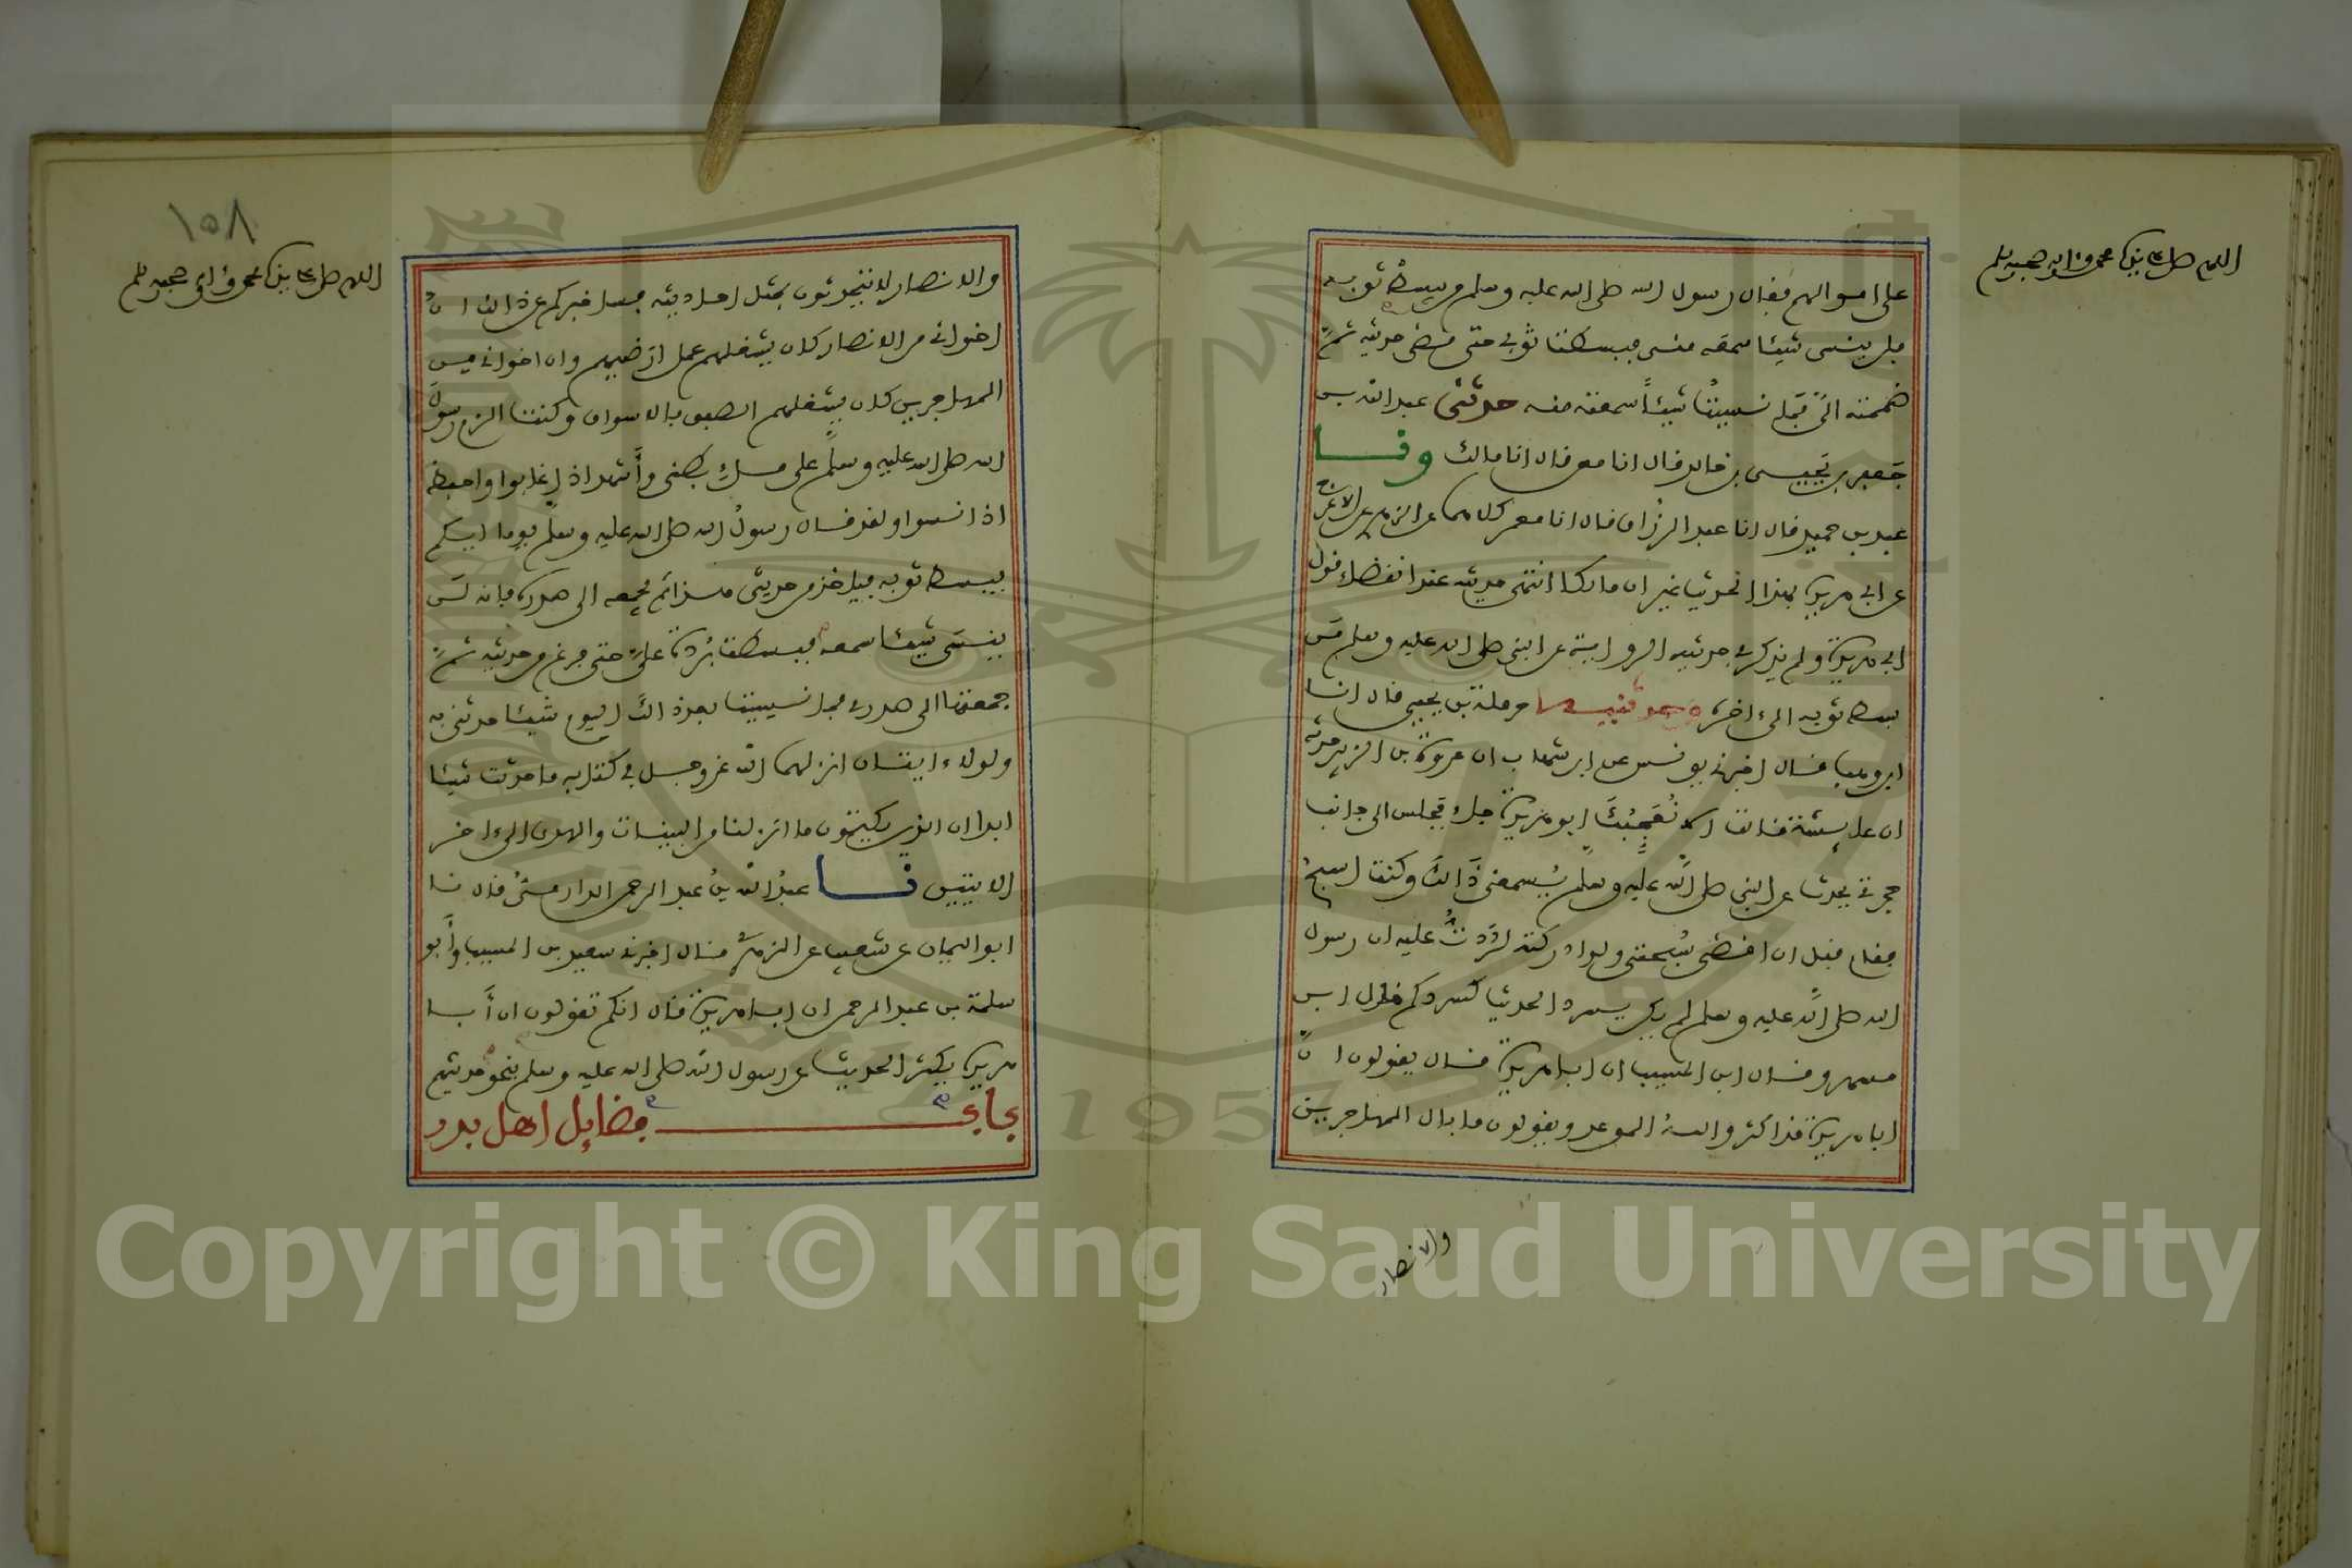 اللهم صل على سيدنا محمد وآله وصحبه وسلم
على اموالهم فقال رسول الله صلى الله عليه وسلم من يبسط ثوبه
فلن ينسى شيئا سمعه منى فبسطت ثوبي حتى قضى حديثه ثم
ضممته الىّ فما نسيت شيئاً سمعته منه حدثنى عبد الله بن
جعفر بن يحيى بن خالد قال انا معن قال انا مالك ونا
عبد بن حميد قال انا عبد الرزاق قال انا معمر كلاهما عن الزهرى عن الاعرج
عن ابى هريرة بهذا الحديث غير ان مالكا انتهى حديثه عند انقضاء قول
ابى هريرة ولم يذكر فى حديثه الرواية عن النبى صلى الله عليه وسلم من
يبسط ثوبه الى ءاخره وحدثنيه حرملة بن يحيى قال انا
ابن وهب قال اخبرنى يونس عن ابن شهاب ان عروة بن الزبير حدثه
ان عايشة قالت الا يُعجبك ابو هريرة جاء فجلس الى جانب
حجرتى يحدث عن النبى صلى الله عليه وسلم يُسمعنى ذالك وكنت اسبح
فقام قبل ان اقضى سُبحتى ولو ادركته لرددت عليه ان رسول
الله صلى الله عليه وسلم لم يكن يسرد الحديث كسردكم قال ابن
شهاب وقال ابن المسيب ان ابا هريرة قال يقولون انّ
ابا هريرة قد اكثر والله الموعد ويقولون ما بال المهاجرين
والانصار
١٥٨
اللهم صل على سيدنا محمد وآله وصحبه وسلم
والانصار لا يتحدثون بمثل احاديثه وساخبركم عن ذالك انّ
اخوانى من الانصار كان يشغلهم عمل ارضيهم وان اخوانى من
المهاجرين كان يشغلهم الصفق بالاسواق وكنت الزم رسول
الله صلى الله عليه وسلم على ملء بطنى وأشهد اذا غابوا واحفظ
اذا نسوا ولقد قال رسول الله صلى الله عليه وسلم يوما ايكم
يبسط ثوبه فياخذ من حديثى هذا ثم يجمعه الى صدره فانه لن
ينسى شيئا سمعه فبسطت بُردة علىّ حتى فرغ من حديثه ثم
جمعتها الى صدرى فما نسيت بعد ذالك اليوم شيئا حدثنى به
ولولا ءايتان انزلهما الله عز وجل فى كتابه ما حدثت شيئا
ابدا ان الذين يكتمون ما انزلنا من البينات والهدى الى ءاخر
الايتين نا عبد الله بن عبد الرحمن الدارمى قال نا
ابو اليمان عن شعيب عن الزهرى قال اخبرنى سعيد بن المسيب وأبو
سلمة بن عبد الرحمن ان ابا هريرة قال انكم تقولون ان أبا
هريرة يكثر الحديث عن رسول الله صلى الله عليه وسلم بنحو حديثهم
باب فضايل اهل بدر
1957
Copyright © King Saud University